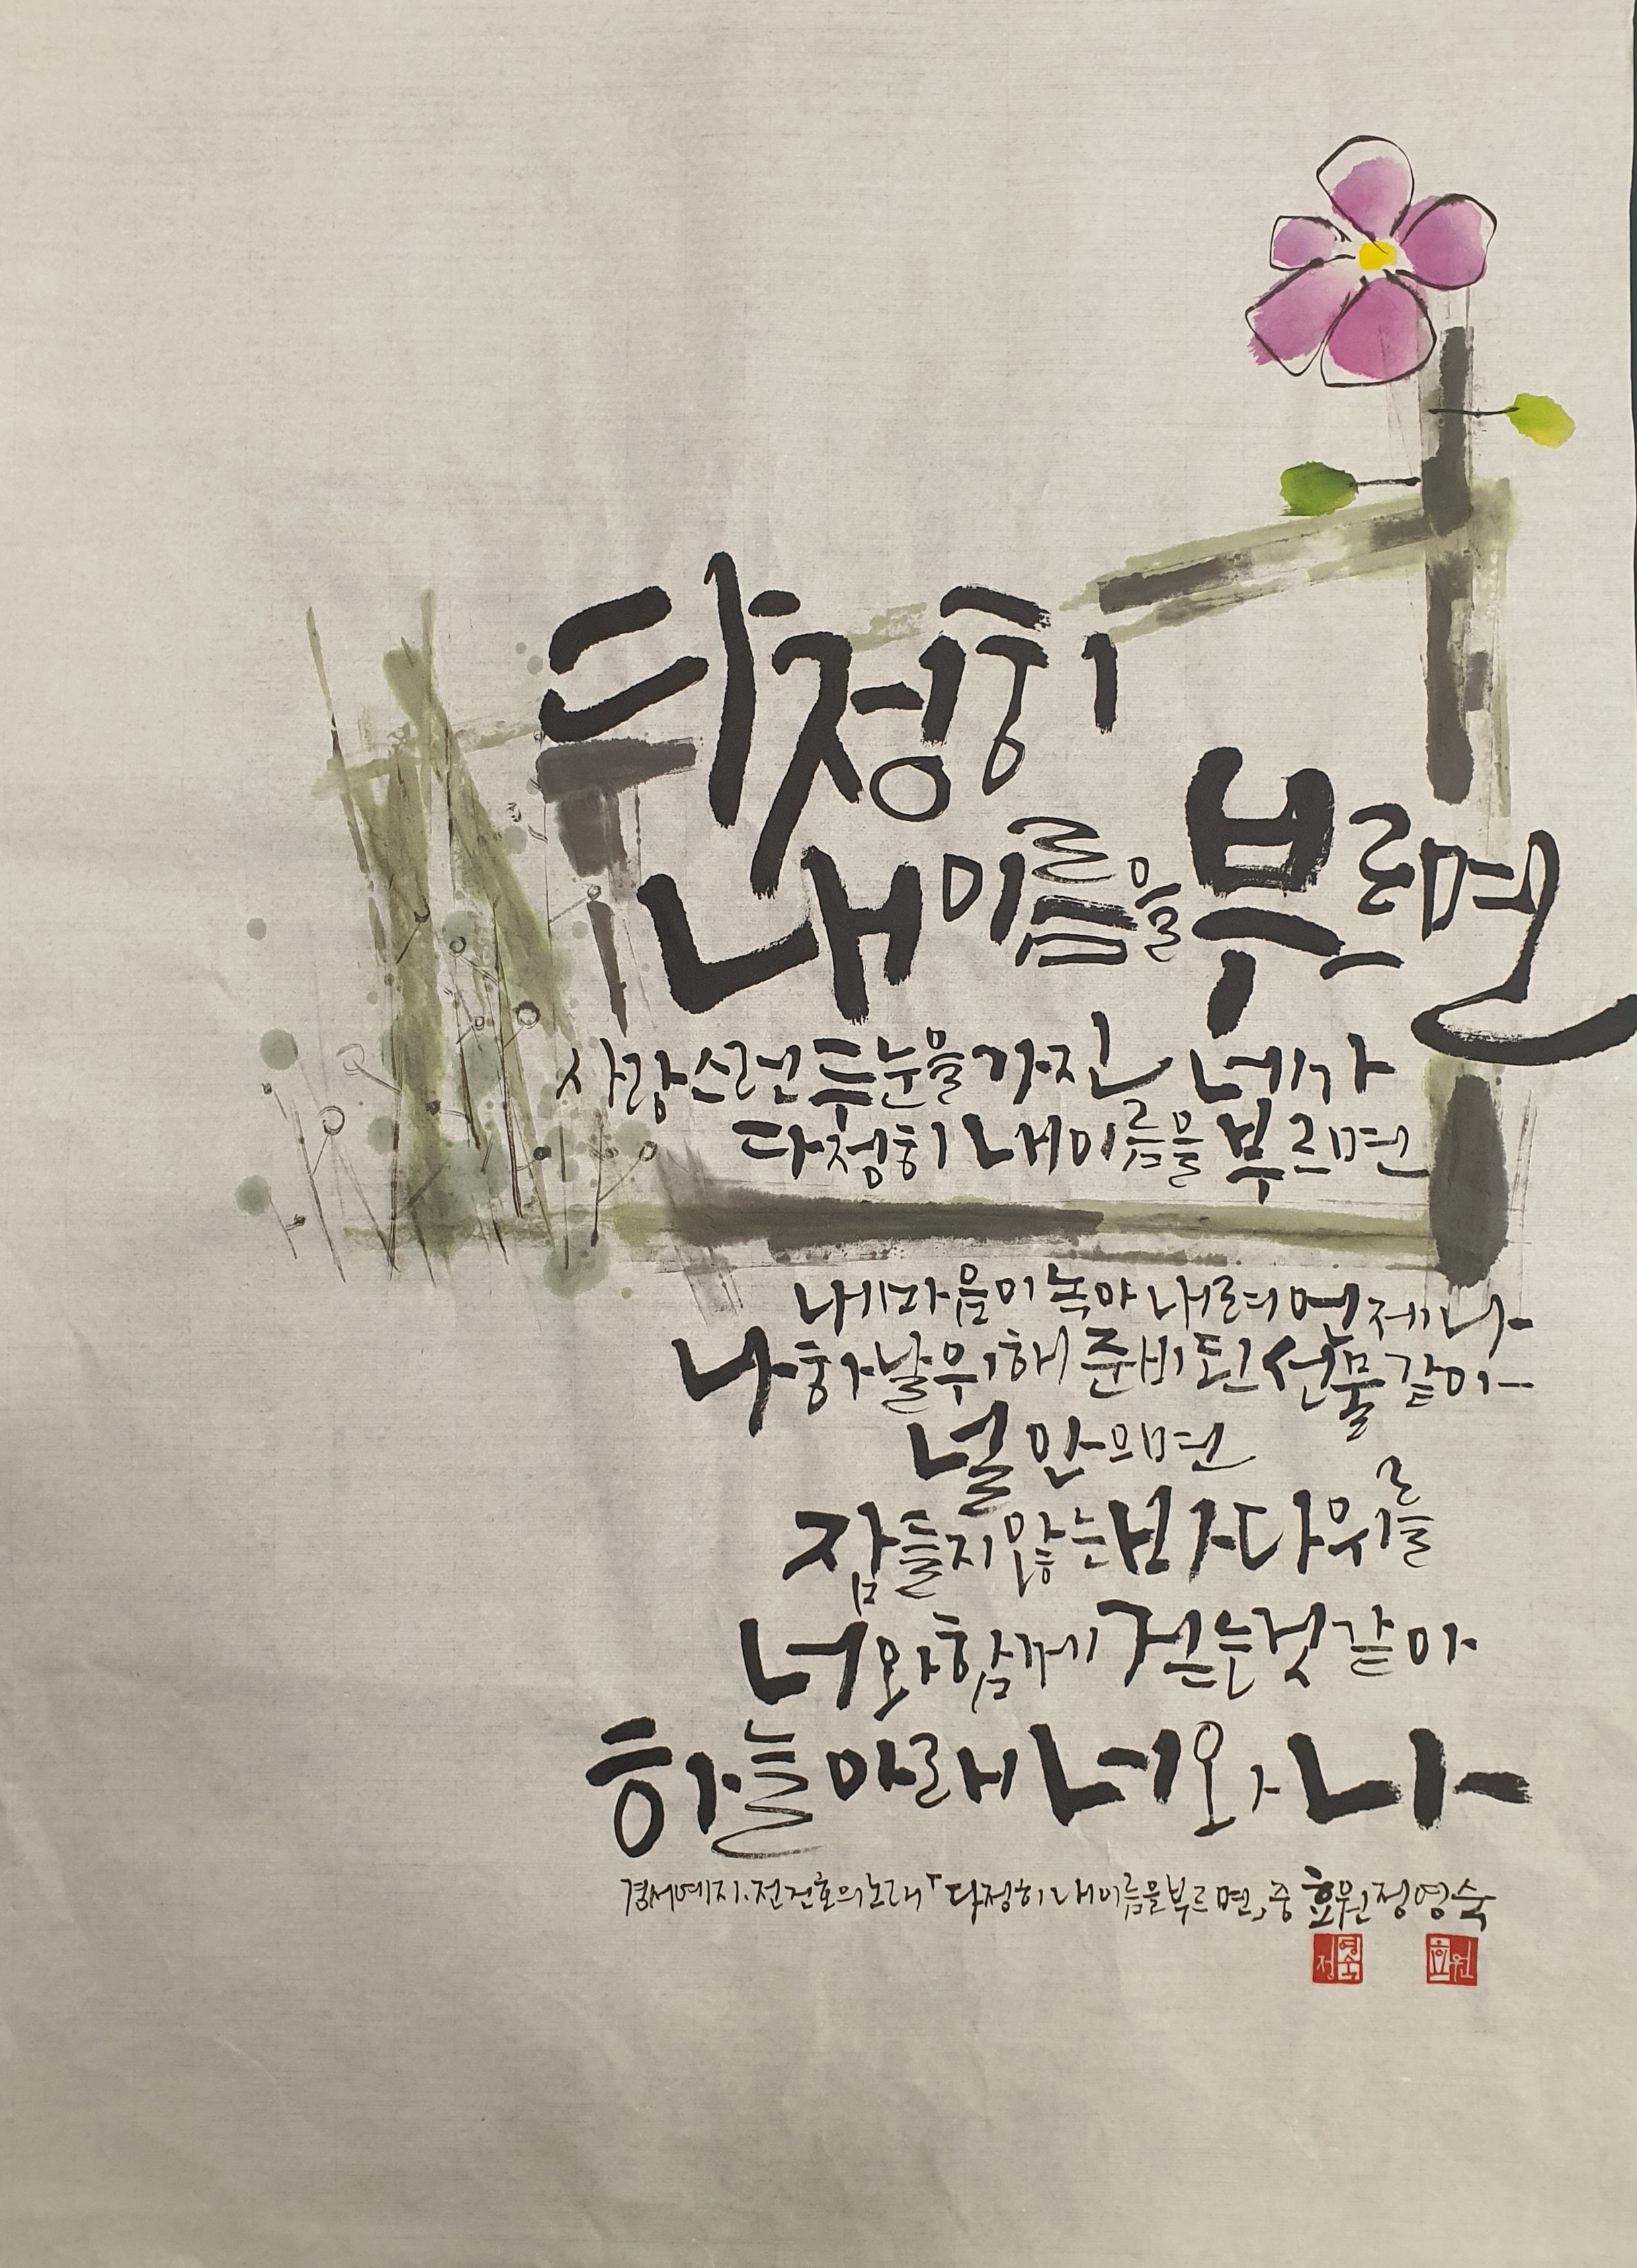 다정히
내 이름을 부르면
사랑스런 두 눈을 가진 네가
다정히 내 이름을 부르면
내 마음이 녹아내려 언제나
나 항상 날 위해 준비된 선물 같아
널 안으면
잠들지 않는 바다 위를
너와 함께 걷는 것 같아
하늘 아래 너와 나
경서예지.전건호의 노래 「다정히 내 이름을 부르면」 중 효원 정영숙
정영숙 효원